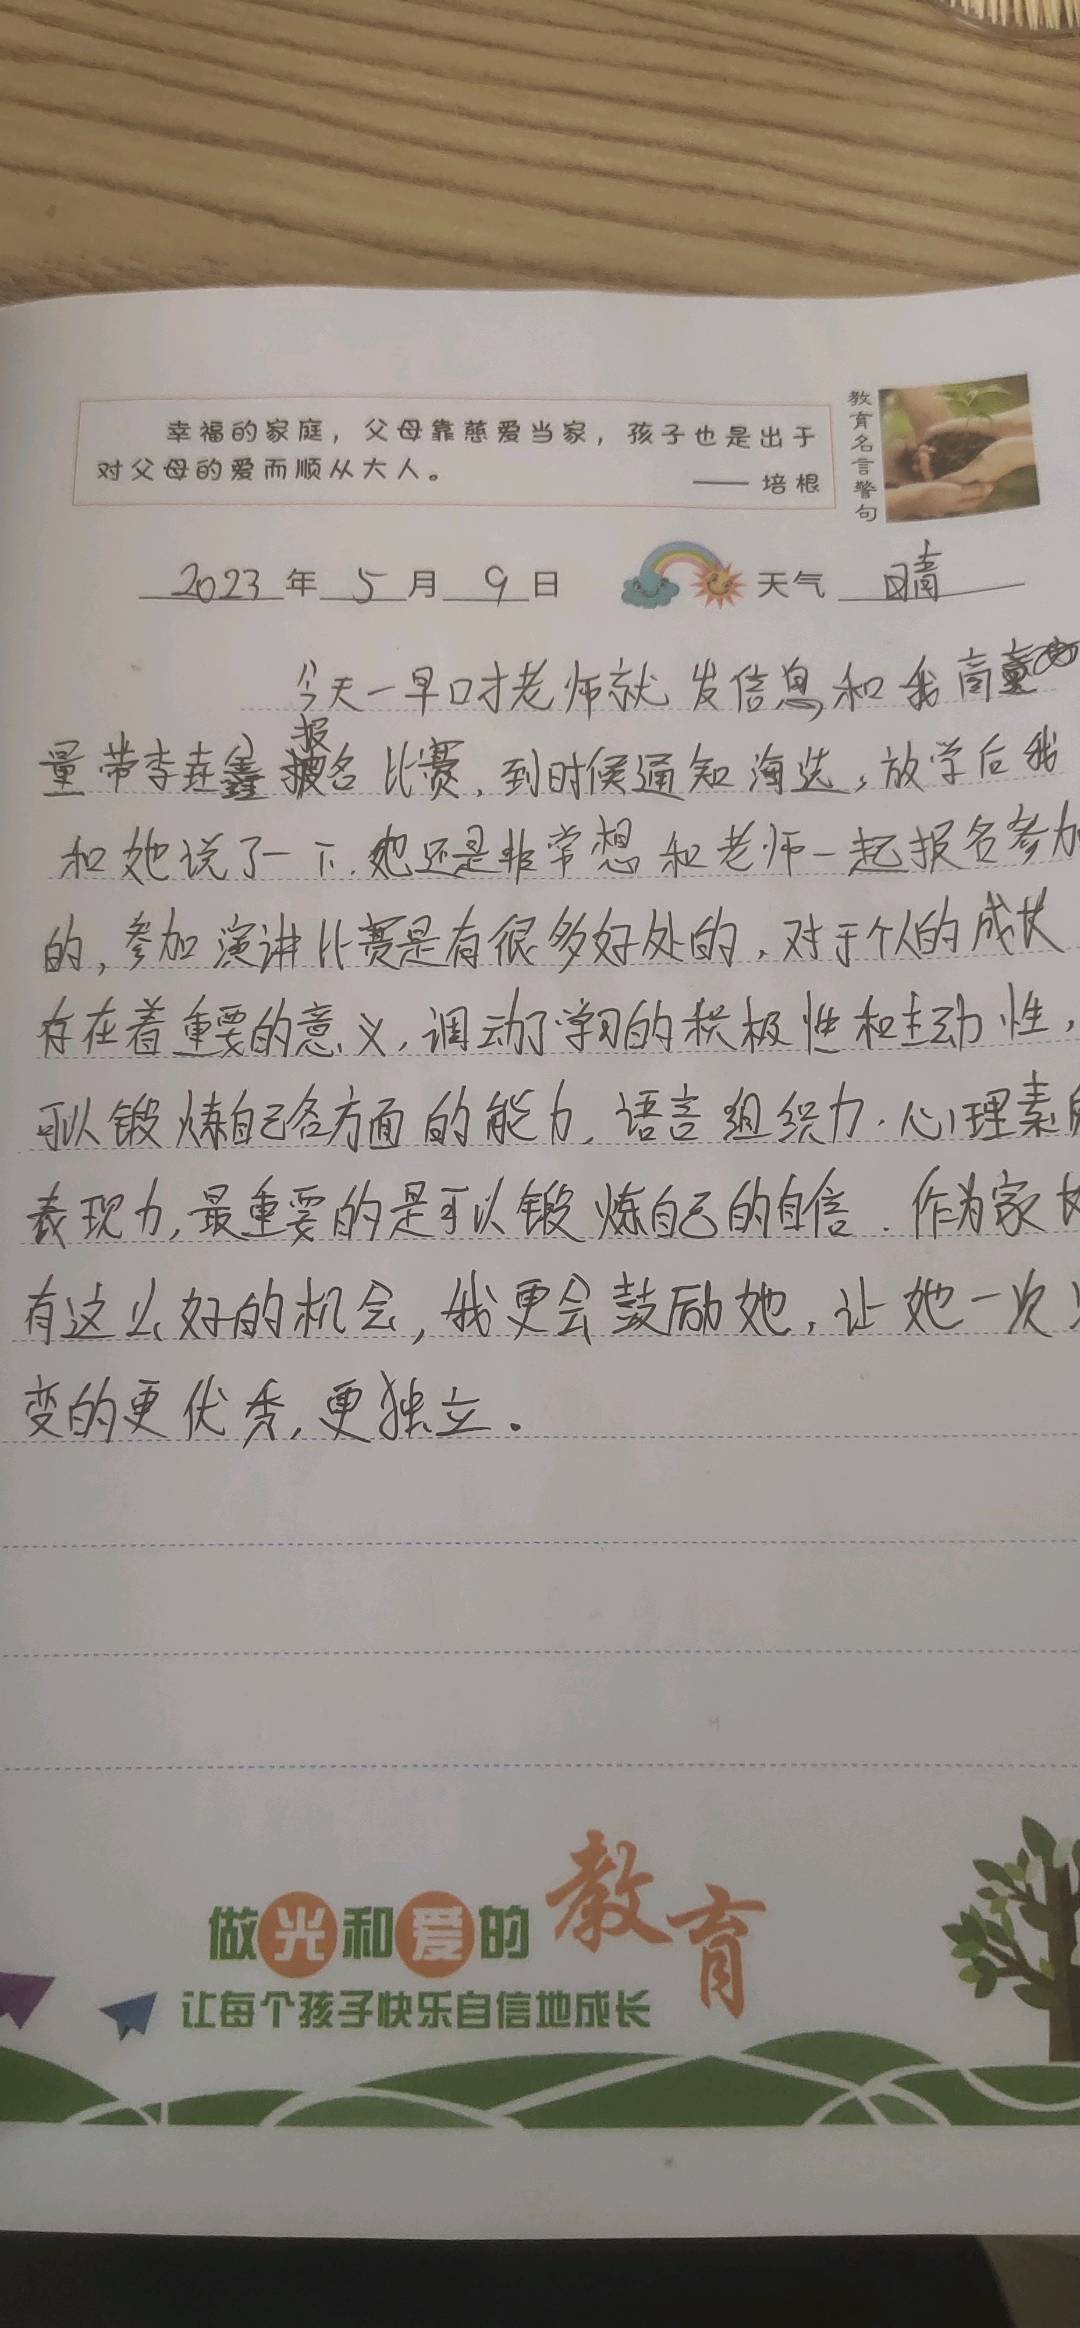 幸福的家庭，父母靠慈爱当家，孩子也是出于
对父母的爱而顺从大人。
—— 培根
教育名言警句
2023年5月9日 天气 晴
今天一早口才老师就发信息和我商
量带李垚鑫报名比赛，到时候通知海选，放学后我
和她说了一下，她还是非常想和老师一起报名参加
的，参加演讲比赛是有很多好处的，对于个人的成长
存在着重要的意义，调动了学习的积极性和主动性，
可以锻炼自己各方面的能力，语言组织力.心理素质
表现力，最重要的是可以锻炼自己的自信.作为家长
有这么好的机会，我更会鼓励她，让她一次
变的更优秀，更独立。
做光和爱的教育
让每个孩子快乐自信地成长